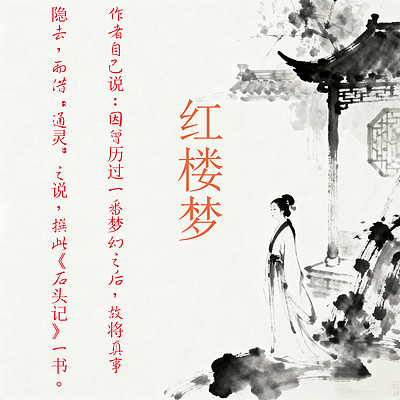 红楼梦
作者自己说：因曾历过一番梦幻之后，故将真事
隐去，而借“通灵”之说，撰此《石头记》一书。